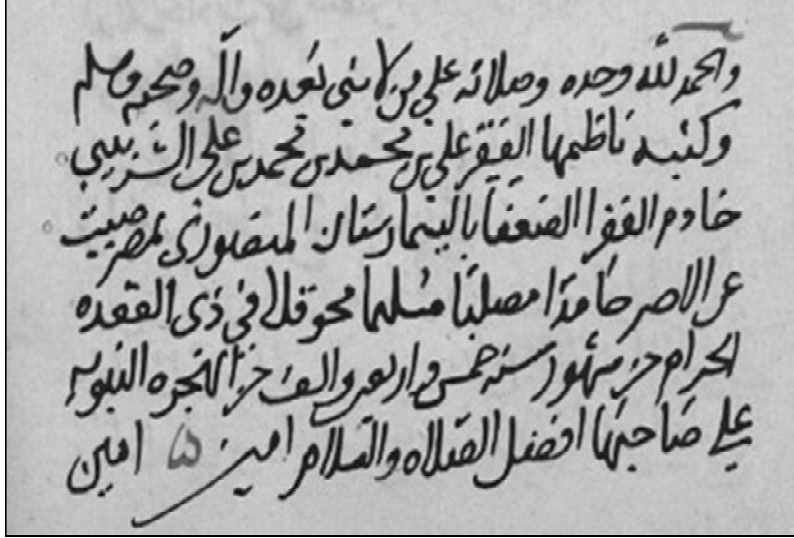 والحمد لله وحده وصلاته على من لا نبي بعده وآله وصحبه وسلم
وكتبه ناظمها الفقير علي بن محمد بن محمد بن علي
خادم الفقرا الضعفا بالبيمارستان المنصوري بمصر
عن الاصر حامدا مصليا مسلما محوقلا في ذي القعده
الحرام من شهور سنه خمس واربعين والف من الهجره النبويه
على صاحبها افضل الصلاه والسلام امين امين